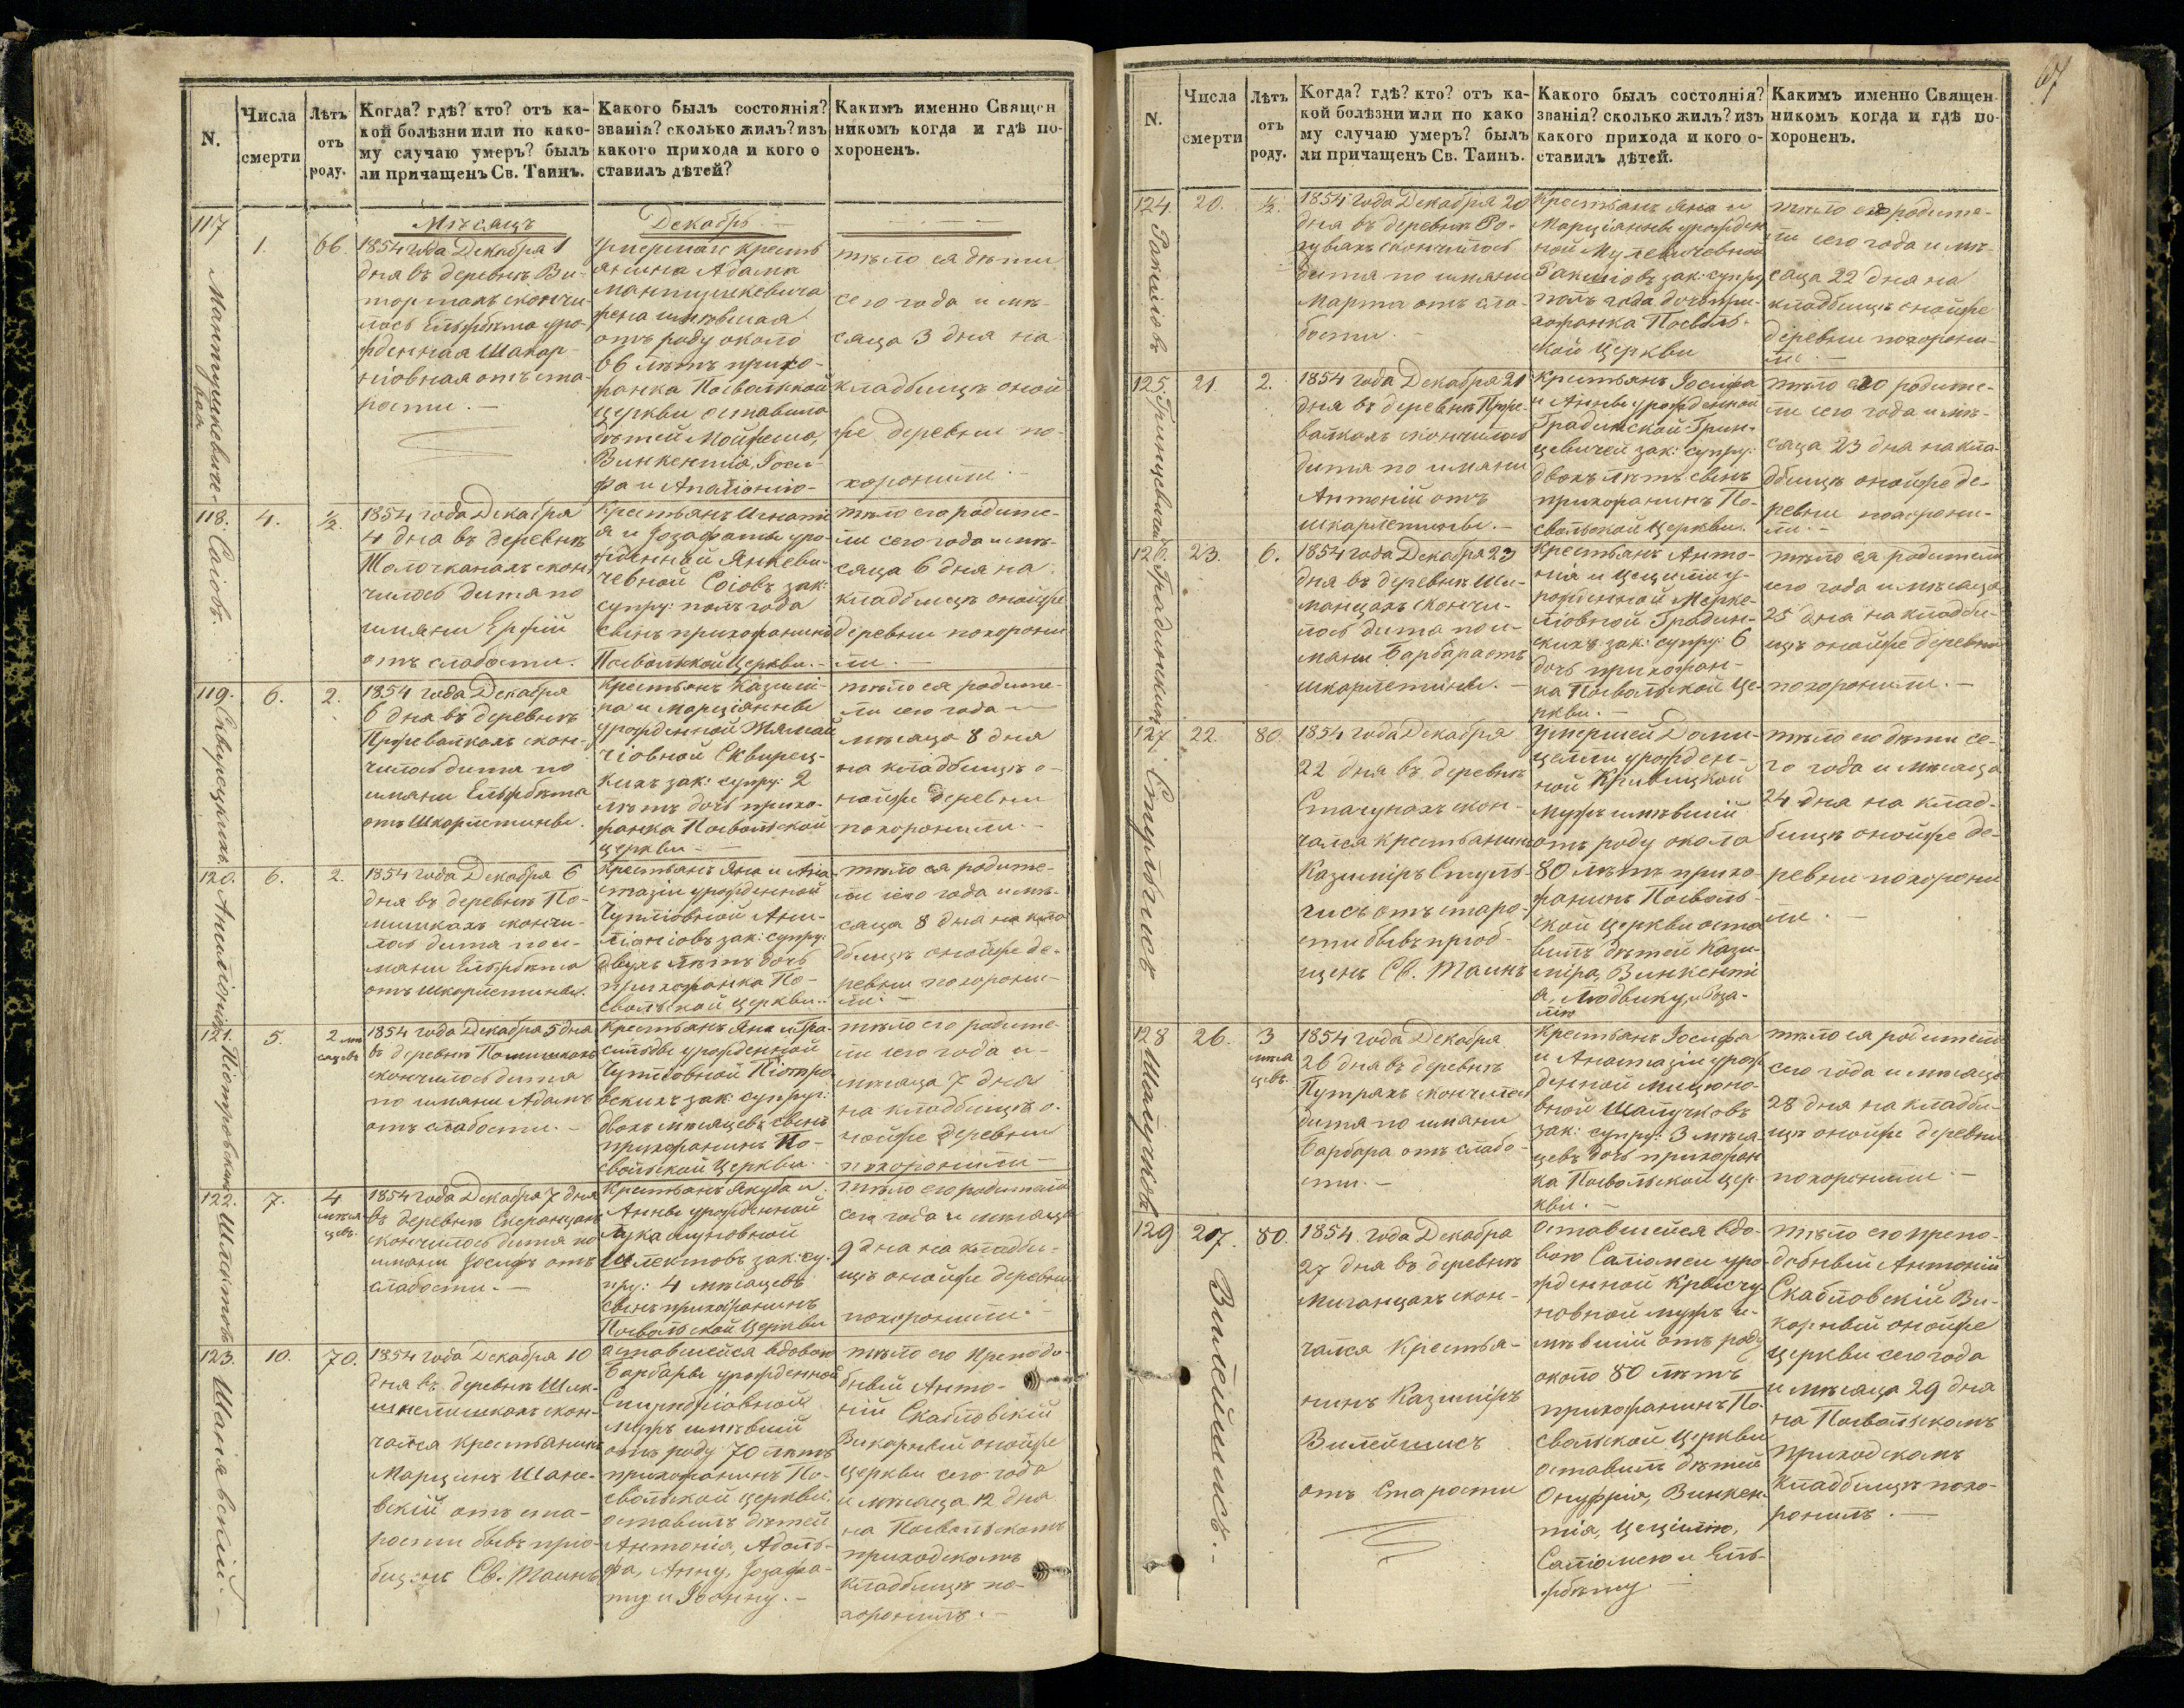 N.
Числа
смерти
Лѣтъ
отъ
роду.
Когда? гдѣ? кто? отъ ка-
кой болѣзни или по како-
му случаю умеръ? былъ
ли причащенъ Св. Таинъ.
Какого былъ состоянія?
званія? сколько жилъ? изъ
какого прихода и кого о
ставилъ дѣтей?
Какимъ именно Священ
никомъ когда и гдѣ по-
хороненъ.
Мѣсяцъ
Декабрь
117
1.
66.
1854 года Декабря 1
дня въ деревнѣ
скончи-
лось Ельжбѣта уро-
жденная
отъ ста-
рости. —
Умершаго крестья
янина Адама
жена имѣвшая
отъ роду около
66 лѣтъ прихо-
жанка Посвольской
церкви оставила
дѣтей
Винкентія, Іоси-
фа и Аполіонію-
тѣло ея дѣти
сего года и мѣ-
сяца 3 дня на
кладбищѣ оной
же деревни по-
хоронили. —
118.
Саіовъ.
4.
½.
1854 года Декабря
4 дня въ деревнѣ
скон-
чилось дитя по
имяни
отъ слабости.
Крестьянъ Игнаті
я и Іозафаты уро
жденной Янкеви-
чевной зак:
супру: полъ года
сынъ прихожанинъ
Посвольской Церкви. —
тѣло его родите-
ли сего года и мѣ-
сяца 6 дня на
кладбищѣ онойже
деревни похорони
ли. —
119.
6.
2.
1854 года Декабря
6 дня въ деревнѣ
скон-
чилось дитя по
имяни Ельжбѣта
отъ Шкарлетины.
Крестьянъ Казими-
ра и Марціянны
урожденной
зак: супру: 2
лѣтъ дочь прихо-
жанка Посвольской
церкви —
тѣло ея родите-
ли сего года и
мѣсяца 8 дня
на кладбищѣ о-
нойже деревни
похоронили. —
120.
6.
2.
1854 года Декабря 6
дня въ деревнѣ По-
скончи-
лось дитя по и-
мяни Ельжбѣта
отъ шкарлетины.
Крестьянъ Яна и Ана
стазіи урожденной
зак: супру:
двухъ лѣтъ дочь
прихожанка По-
свольской церкви. —
тѣло ея родите-
ли сего года и мѣ-
сяца 8 дня на кла
дбищѣ онойже де-
ревни похорони-
ли. —
121.
5.
2 мѣ
сяцевъ
1854 года Декабря 5 дня
въ деревнѣ
скончилось дитя
по имяни Адамъ
отъ слабости. —
Крестьянъ Яна и
урожденной
зак: супруг:
двохъ мѣсяцевъ сынъ
прихожанинъ По-
свольской Церкви. —
тѣло его родите-
ли сего года и
мѣсяца 7 дня
на кладбищѣ о-
нойже деревни
похоронили —
122.
7.
4
мѣся
цевъ.
1854 года Декабря 7 дня
въ деревнѣ
скончилось дитя по
имяни Іосифъ отъ
слабости. —
Крестьянъ Якуба и
Анны урожденной
зак: су-
пру: 4 мѣсяцевъ
сынъ прихожанинъ
Посвольской Церкви
тѣло его родители
сего года и мѣсяца
9 дня на кладби-
щѣ онойже деревни
похоронили. —
123.
10.
70.
1854 года Декабря 10
дня въ деревнѣ
скон-
чался крестьянинъ
Марцинъ
отъ ста-
рости бывъ пріо-
бщенъ Св. Таинъ
оставшейся вдовою
Барбары урожденной
мужъ имѣвшій
отъ роду 70 лѣтъ
прихожанинъ По-
свольской церкви,
оставилъ дѣтей
Антонія, Адоль-
фа, Анну, Іозафа-
ту и Іоанну. —
тѣло его Преподо-
бный Анто-
ній Скабловскій
Викарный онойже
церкви сего года
и мѣсяца 12 дня
на Посвольскомъ
приходскомъ
кладбищѣ по-
хоронилъ. —
N.
Числа
смерти
Лѣтъ
отъ
роду.
Когда? гдѣ? кто? отъ ка-
кой болѣзни или по како
му случаю умеръ? былъ
ли причащенъ Св. Таинъ.
Какого былъ состоянія?
званія? сколько жилъ? изъ
какого прихода и кого о-
ставилъ дѣтей.
Какимъ именно Священ-
никомъ когда и гдѣ по-
хороненъ.
124.
20.
½.
1854 года Декабря 20
дня въ деревнѣ
скончилось
дитя по имяни
Марта отъ сла-
бости. —
Крестьянъ Яна и
Марціянны урожден
ной
зак: супру
полъ года дочь при-
хожанка Посволь-
ской Церкви
тѣло ея родите-
ли сего года и мѣ-
сяца 22 дня на
кладбищѣ онойже
деревни похорони-
ли. —
125.
21.
2.
1854 года Декабря 21
дня въ деревнѣ
скончилось
дитя по имяни
Антоній отъ
шкарлетины. —
Крестьянъ Іосифа
и Анны урожденной
Градинской Грин-
цевичей зак: супру:
двохъ лѣтъ сынъ
прихожанинъ По-
свольской Церкви.
тѣло его родите-
ли сего года и мѣ-
сяца 23 дня на кла-
дбищѣ онойже де-
ревни похорони-
ли. —
126.
23.
6.
1854 года Декабря 23
дня въ деревнѣ Ши-
манцахъ скончи-
лось дитя по и-
мяни Барбара отъ
шкарлетины. —
Крестьянъ Анто-
нія и Цециліи у-
рожденной Мерке-
ловной Градин-
скихъ зак: супру: 6
дочь прихожан-
ка Посвольской Це-
ркви. —
тѣло ея родители
сего года и мѣсяца
25 дня на кладби-
щѣ онойже деревни
похоронили. —
127.
Стульгисъ
22.
80.
1854 года Декабря
22 дня въ деревнѣ
Стачунахъ скон-
чался крестьянинъ
Казиміръ Стуль-
гисъ отъ старо-
сти бывъ пріоб-
щенъ Св. Таинъ
Умершей Доми-
целли урожден-
ной Кривицкой
мужъ имѣвшій
отъ роду около
80 лѣтъ прихо-
жанинъ Посволь-
ской церкви оста
вилъ дѣтей Кази-
міра, Винкенті
я, Людвику, и Роза-
лію
тѣло его дѣти се-
го года и мѣсяца
24 дня на клад-
бищѣ онойже де-
ревни похорони
ли. —
128
26.
3
мѣся
цевъ.
1854 года Декабря
26 дня въ деревнѣ
Путрахъ скончилось
дитя по имяни
Барбара отъ слабо-
сти. —
Крестьянъ Іосифа
и Анастазіи урож
денной
зак: супру: 3 мѣся-
цевъ дочь прихожан
ка Посвольской цер-
кви. —
тѣло ея родители
сего года и мѣсяца
28 дня на кладби-
щѣ онойже деревни
похоронили. —
129
Вилейшисъ. —
27.
80.
1854 года Декабря
27 дня въ деревнѣ
Миганцахъ скон-
чался Крестья-
нинъ Казиміръ
Вилейшисъ
отъ Старости
оставшейся вдо-
вою Саломеи уро
жденной
мужъ и-
мѣвшій отъ роду
около 80 лѣтъ
прихожанинъ По-
свольской Церкви
оставилъ дѣтей
Онуфрія, Винкен-
тія, Цецилію,
Саломею и Ель-
жбѣту. —
тѣло его препо-
добный Антоній
Скабловскій Ви-
карный онойже
церкви сего года
и мѣсяца 29 дня
на Посвольскомъ
приходскомъ
кладбищѣ похо-
ронилъ. —